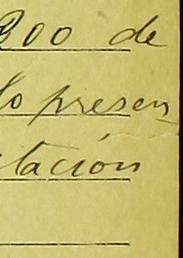 200 de
lo presen
tación